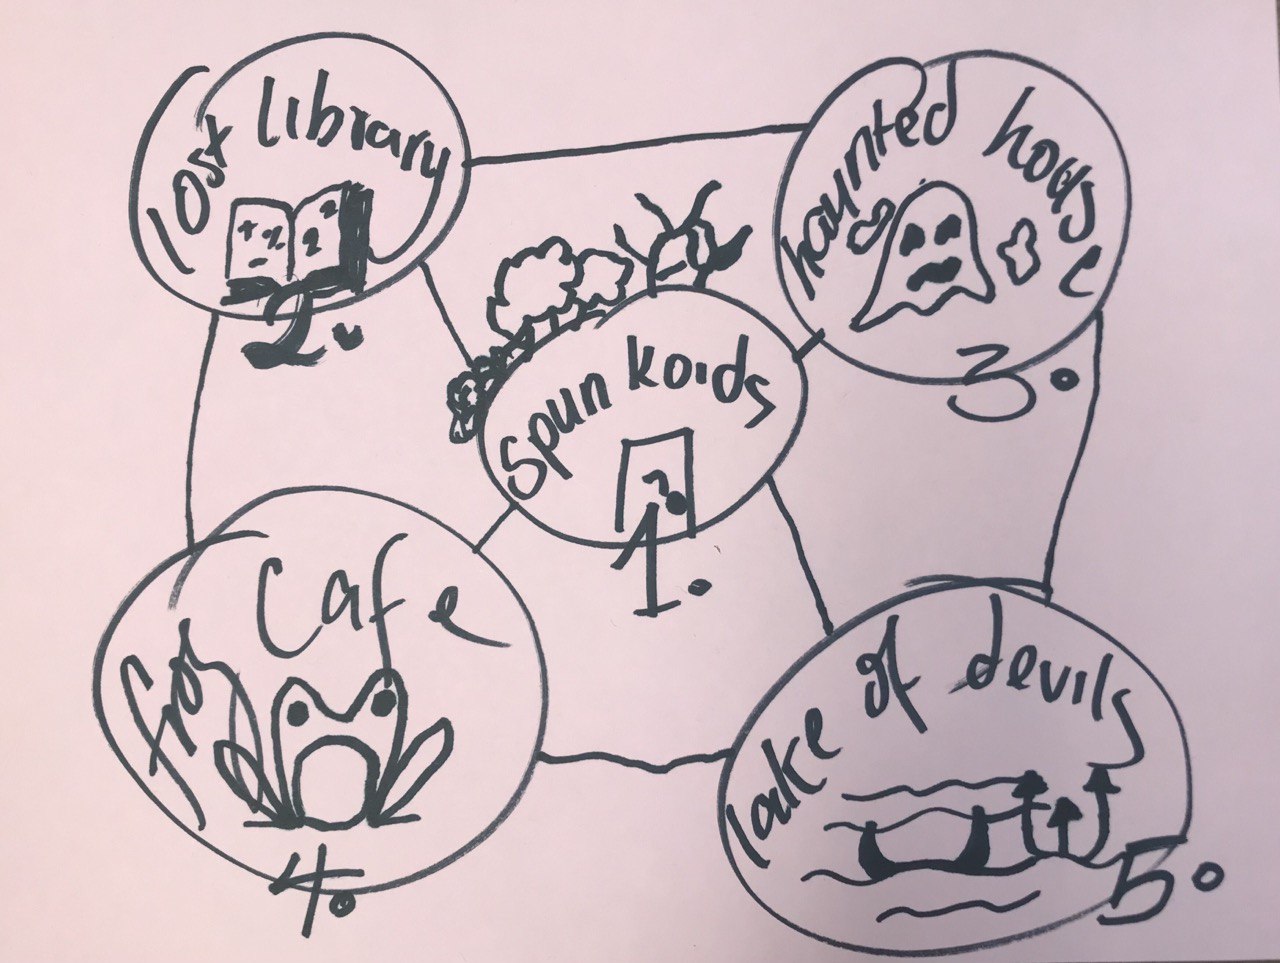 lost library
2.
haunted house
3.
Spun koids
?
1.
frog Cafe
4.
lake of devils
5.